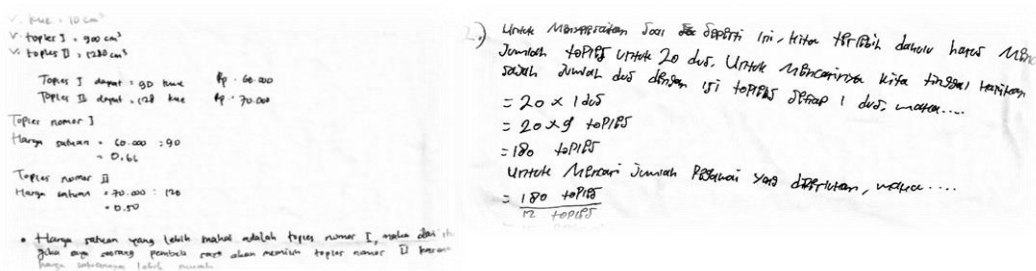 V. kue = 10 cm³
V. toples I = 900 cm³
V. toples II = 1280 cm³
Toples I dapat = 90 kue Rp. 60.000
Toples II dapat = 128 kue Rp. 70.000
Toples nomer I
Harga satuan = 60.000 : 90
= 0.66
Toples nomer II
Harga satuan = 70.000 : 120
= 0.50
• Harga satuan yang lebih mahal adalah toples nomer I, maka dari
jika saya seorang pembeli saya akan memilih toples nomer II karena
harga satuannya lebih murah
2.) Untuk soal seperti ini, kita terlebih dahulu harus
Jumlah toples untuk 20 dus. Untuk mencarinya kita tinggal
jumlah dus dengan isi toples setiap 1 dus, maka....
= 20 x 1 dus
= 20 x 9 toples
= 180 toples
Untuk mencari jumlah pegawai yang diperlukan, maka....
= 180 toples
12 toples